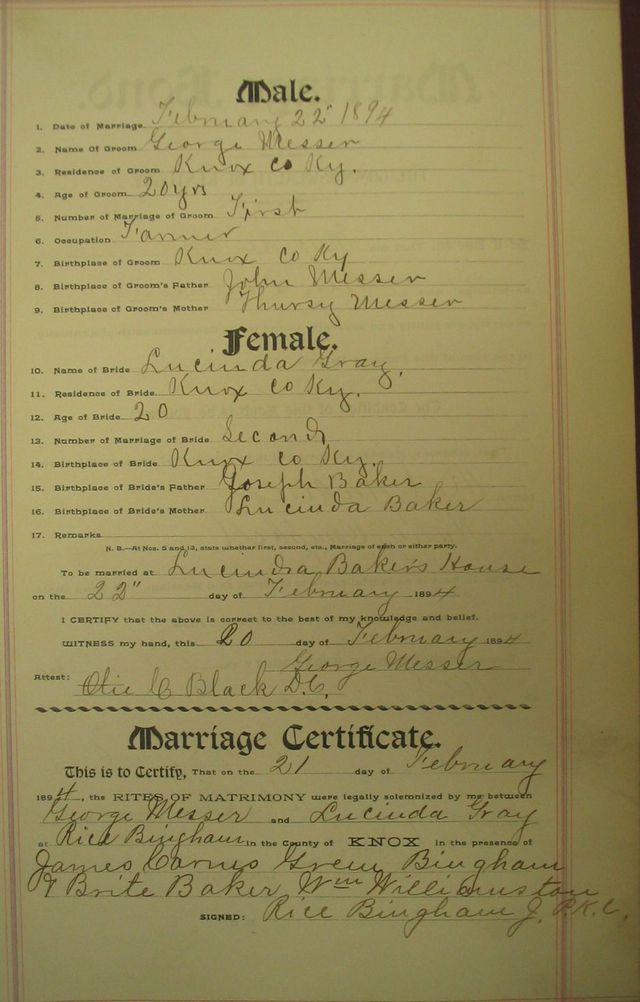 Male.
1. Date of Marriage February 22" 1894
2. Name Of Groom George Messer
3. Residence of Groom Knox Co Ky.
4. Age of Groom 20 yrs
5. Number of Marriage of Groom First
6. Occupation Farmer
7. Birthplace of Groom Knox Co Ky
8. Birthplace of Groom's Father John Messer
9. Birthplace of Groom's Mother Thursy Messer
Female.
10. Name of Bride Lucinda Gray.
11. Residence of Bride Knox Co Ky.
12. Age of Bride 20
13. Number of Marriage of Bride Second
14. Birthplace of Bride Knox Co Ky.
15. Birthplace of Bride's Father Joseph Baker
16. Birthplace of Bride's Mother Lucinda Baker
17. Remarks
N. B.—At Nos. 5 and 13, state whether first, second, etc., Marriage of each or either party.
To be married at Lucinda Bakers House
on the 22" day of February 1894
I CERTIFY that the above is correct to the best of my knowledge and belief.
WITNESS my hand, this 20 day of February 1894
George Messer
Attest: Black D.C.
Marriage Certificate.
This is to Certify, That on the 21 day of February
1894, the RITES OF MATRIMONY were legally solemnized by me between
George Messer and Lucinda Gray
at Rice Bingham in the County of KNOX in the presence of
James Carnes Green Bingham
& Brite Baker, Wm Williamston
SIGNED: Rice Bingham J. P. K. C.